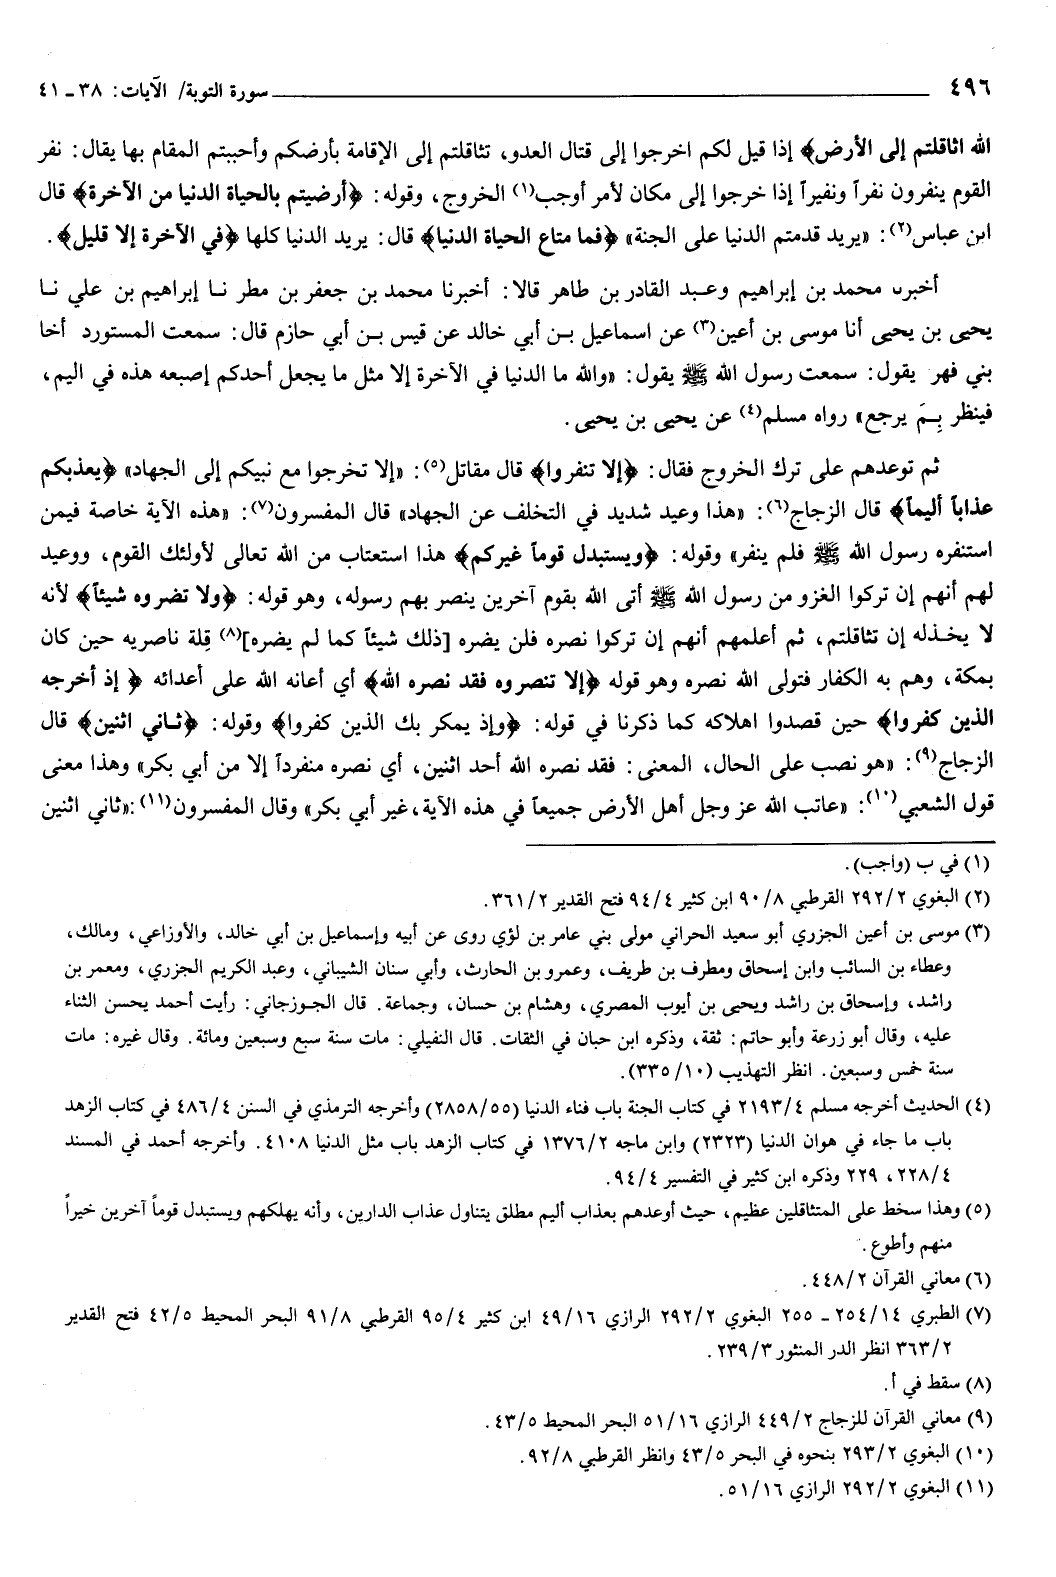 ٤٩٦ ــــ سورة التوبة/ الآيات: ٣٨ ـ ٤١
الله اثاقلتم إلى الأرض﴾ إذا قيل لكم اخرجوا إلى قتال العدو، تثاقلتم إلى الإقامة بأرضكم وأحببتم المقام بها يقال: نفر
القوم ينفرون نفراً ونفيراً إذا خرجوا إلى مكان لأمر أوجب(١) الخروج، وقوله: ﴿أرضيتم بالحياة الدنيا من الآخرة﴾ قال
ابن عباس(٢): «يريد قدمتم الدنيا على الجنة» ﴿فما متاع الحياة الدنيا﴾ قال: يريد الدنيا كلها ﴿في الآخرة إلا قليل﴾.
أخبرنا محمد بن إبراهيم وعبد القادر بن طاهر قالا: أخبرنا محمد بن جعفر بن مطر نا إبراهيم بن علي نا
يحيى بن يحيى أنا موسى بن أعين(٣) عن اسماعيل بن أبي خالد عن قيس بن أبي حازم قال: سمعت المستورد أخا
بني فهر يقول: سمعت رسول الله ﷺ يقول: «والله ما الدنيا في الآخرة إلا مثل ما يجعل أحدكم إصبعه هذه في اليم،
فينظر بِمَ يرجع» رواه مسلم(٤) عن يحيى بن يحيى.
ثم توعدهم على ترك الخروج فقال: ﴿إلا تنفروا﴾ قال مقاتل(٥): «إلا تخرجوا مع نبيكم إلى الجهاد» ﴿يعذبكم
عذاباً أليماً﴾ قال الزجاج(٦): «هذا وعيد شديد في التخلف عن الجهاد» قال المفسرون(٧): «هذه الآية خاصة فيمن
استنفره رسول الله ﷺ فلم ينفر» وقوله: ﴿ويستبدل قوماً غيركم﴾ هذا استعتاب من الله تعالى لأولئك القوم، ووعيد
لهم أنهم إن تركوا الغزو من رسول الله ﷺ أتى الله بقوم آخرين ينصر بهم رسوله، وهو قوله: ﴿ولا تضروه شيئاً﴾ لأنه
لا يخذله إن تثاقلتم، ثم أعلمهم أنهم إن تركوا نصره فلن يضره [ذلك شيئاً كما لم يضره](٨) قِلة ناصريه حين كان
بمكة، وهم به الكفار فتولى الله نصره وهو قوله ﴿إلا تنصروه فقد نصره الله﴾ أي أعانه الله على أعدائه ﴿ إذ أخرجه
الذين كفروا﴾ حين قصدوا اهلاكه كما ذكرنا في قوله: ﴿وإذ يمكر بك الذين كفروا﴾ وقوله: ﴿ثاني اثنين﴾ قال
الزجاج(٩): «هو نصب على الحال، المعنى: فقد نصره الله أحد اثنين، أي نصره منفرداً إلا من أبي بكر» وهذا معنى
قول الشعبي(١٠): «عاتب الله عز وجل أهل الأرض جميعاً في هذه الآية، غير أبي بكر» وقال المفسرون(١١):«ثاني اثنين
(١) في ب (واجب).
(٢) البغوي ٢٩٢/٢ القرطبي ٩٠/٨ ابن كثير ٩٤/٤ فتح القدير ٣٦١/٢.
(٣) موسى بن أعين الجزري أبو سعيد الحراني مولى بني عامر بن لؤي روى عن أبيه وإسماعيل بن أبي خالد، والأوزاعي، ومالك،
وعطاء بن السائب وابن إسحاق ومطرف بن طريف، وعمرو بن الحارث، وأبي سنان الشيباني، وعبد الكريم الجزري، ومعمر بن
راشد، وإسحاق بن راشد ويحيى بن أيوب المصري، وهشام بن حسان، وجماعة. قال الجوزجاني: رأيت أحمد يحسن الثناء
عليه، وقال أبو زرعة وأبو حاتم: ثقة، وذكره ابن حبان في الثقات. قال النفيلي: مات سنة سبع وسبعين ومائة. وقال غيره: مات
سنة خمس وسبعين. انظر التهذيب (٣٣٥/١٠).
(٤) الحديث أخرجه مسلم ٢١٩٣/٤ في كتاب الجنة باب فناء الدنيا (٢٨٥٨/٥٥) وأخرجه الترمذي في السنن ٤٨٦/٤ في كتاب الزهد
باب ما جاء في هوان الدنيا (٢٣٢٣) وابن ماجه ١٣٧٦/٢ في كتاب الزهد باب مثل الدنيا ٤١٠٨. وأخرجه أحمد في المسند
٢٢٨/٤، ٢٢٩ وذكره ابن كثير في التفسير ٩٤/٤.
(٥) وهذا سخط على المتثاقلين عظيم، حيث أوعدهم بعذاب أليم مطلق يتناول عذاب الدارين، وأنه يهلكهم ويستبدل قوماً آخرين خيراً
منهم وأطوع.
(٦) معاني القرآن ٤٤٨/٢.
(٧) الطبري ٢٥٤/١٤ ـ ٢٥٥ البغوي ٢٩٢/٢ الرازي ٤٩/١٦ ابن كثير ٩٥/٤ القرطبي ٩١/٨ البحر المحيط ٤٢/٥ فتح القدير
٣٦٣/٢ انظر الدر المنثور ٢٣٩/٣.
(٨) سقط في أ.
(٩) معاني القرآن للزجاج ٤٤٩/٢ الرازي ٥١/١٦ البحر المحيط ٤٣/٥.
(١٠) البغوي ٢٩٣/٢ بنحوه في البحر ٤٣/٥ وانظر القرطبي ٩٢/٨.
(١١) البغوي ٢٩٢/٢ الرازي ٥١/١٦.